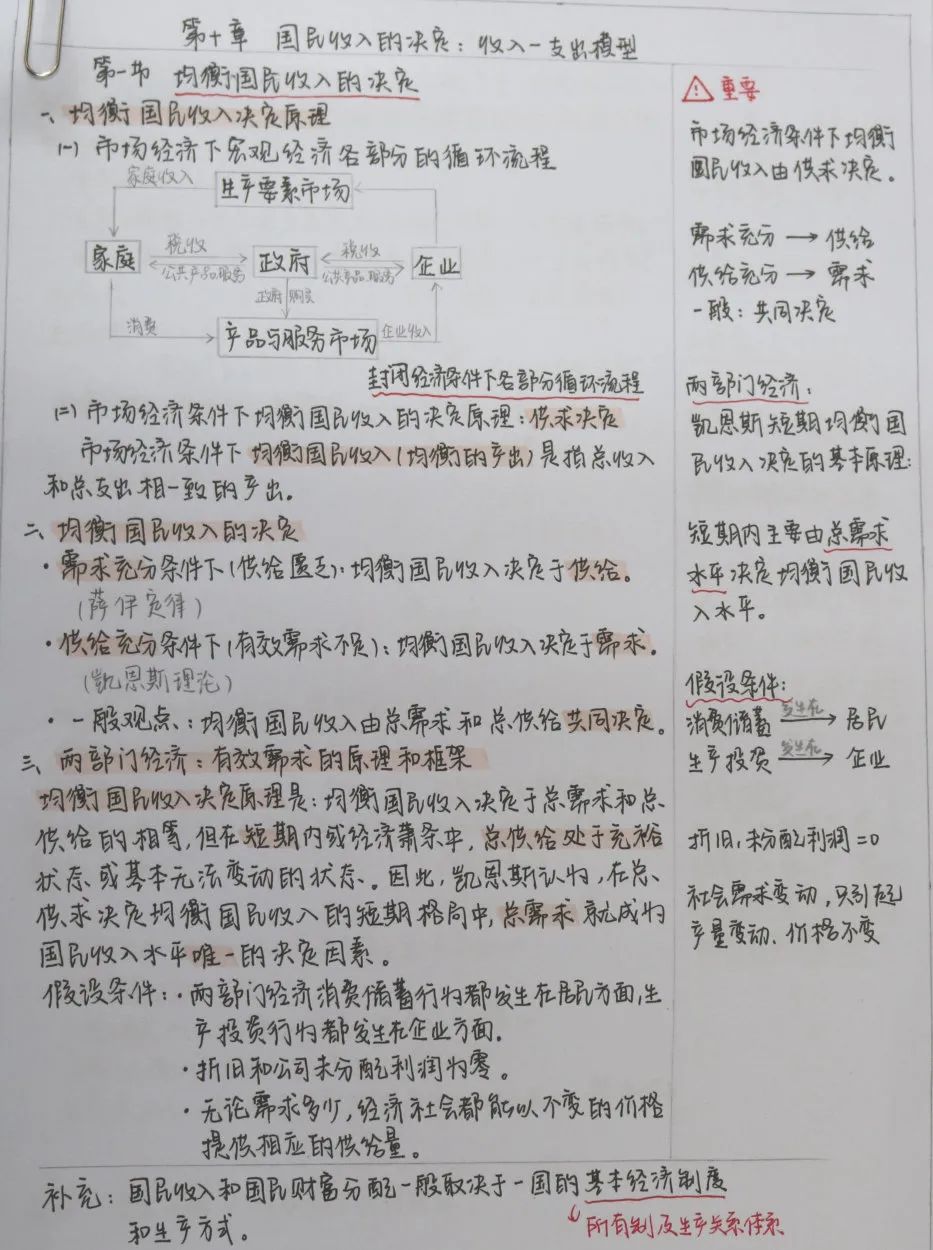 第十章 国民收入的决定：收入－支出模型
第一节 均衡国民收入的决定
一、均衡国民收入决定原理
(一) 市场经济下宏观经济各部分的循环流程
家庭收入
生产要素市场
家庭
税收
公共产品.服务
政府
税收
公共产品.服务
企业
政府购买
消费
产品与服务市场
企业收入
封闭经济条件下各部分循环流程
(二) 市场经济条件下均衡国民收入的决定原理：供求决定
市场经济条件下均衡国民收入(均衡的产出)是指总收入
和总支出相一致的产出。
二、均衡国民收入的决定
·需求充分条件下(供给匮乏)：均衡国民收入决定于供给。
(萨伊定律)
·供给充分条件下(有效需求不足)：均衡国民收入决定于需求。
(凯恩斯理论)
·一般观点：均衡国民收入由总需求和总供给共同决定。
三、两部门经济：有效需求的原理和框架
均衡国民收入决定原理是：均衡国民收入决定于总需求和总
供给的相等，但在短期内或经济萧条中，总供给处于充裕
状态或基本无法变动的状态。因此，凯恩斯认为，在总
供求决定均衡国民收入的短期格局中，总需求就成为
国民收入水平唯一的决定因素。
假设条件：·两部门经济消费储蓄行为都发生在居民方面，生
产投资行为都发生在企业方面.
·折旧和公司未分配利润为零。
·无论需求多少，经济社会都能以不变的价格
提供相应的供给量。
补充：国民收入和国民财富分配一般取决于一国的基本经济制度
和生产方式。
所有制及生产关系体系
重要
市场经济条件下均衡
国民收入由供求决定。
需求充分 → 供给
供给充分 → 需求
一般：共同决定
两部门经济：
凯恩斯短期均衡国
民收入决定的基本原理：
短期内主要由总需求
水平决定均衡国民收
入水平。
假设条件：
消费储蓄 发生在→ 居民
生产投资 发生在→ 企业
折旧，未分配利润=0
社会需求变动，只引起
产量变动、价格不变